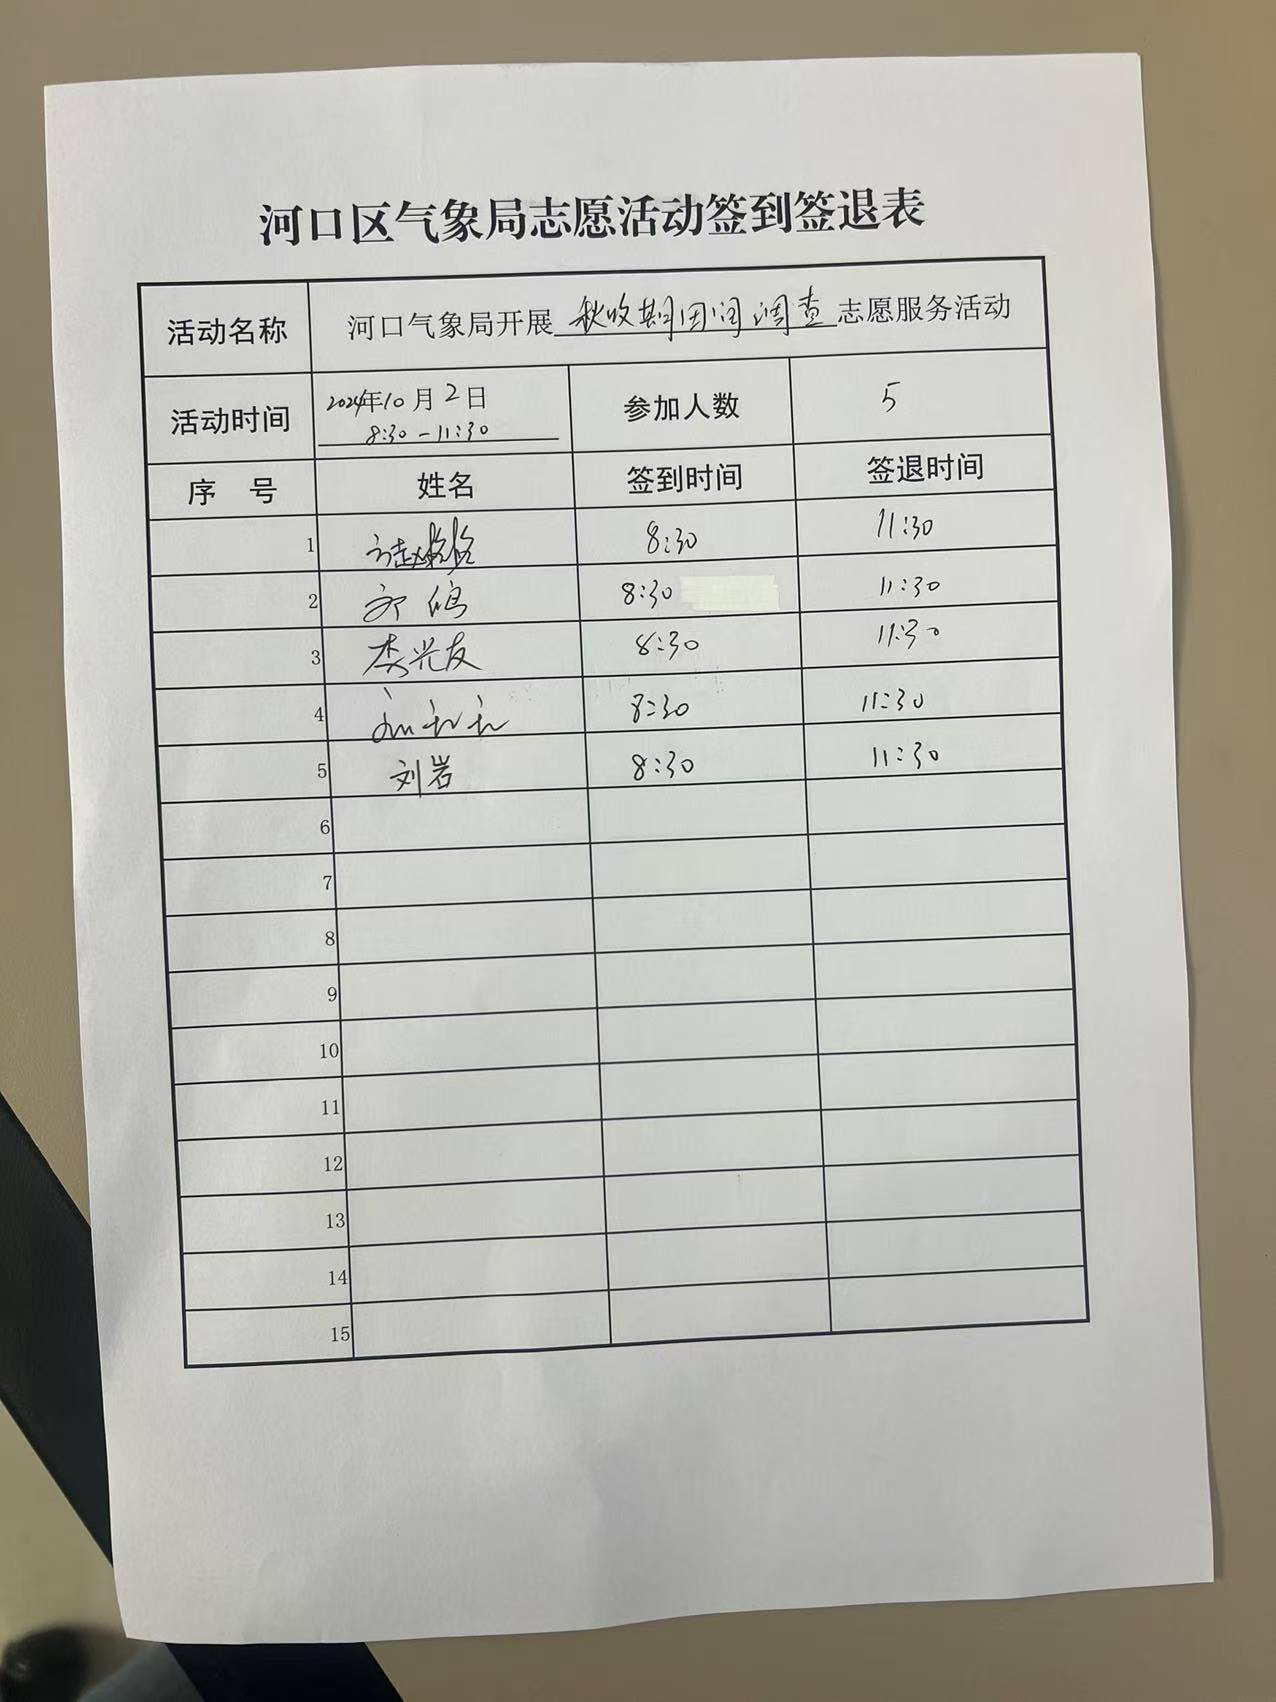 河口区气象局志愿活动签到签退表
活动名称 河口气象局开展秋收期田间调查志愿服务活动
活动时间 2024年10月2日 8:30-11:30 参加人数 5
序 号 姓名 签到时间 签退时间
1 8:30 11:30
2 8:30 11:30
3 李兴友 8:30 11:30
4 8:30 11:30
5 刘岩 8:30 11:30
6
7
8
9
10
11
12
13
14
15